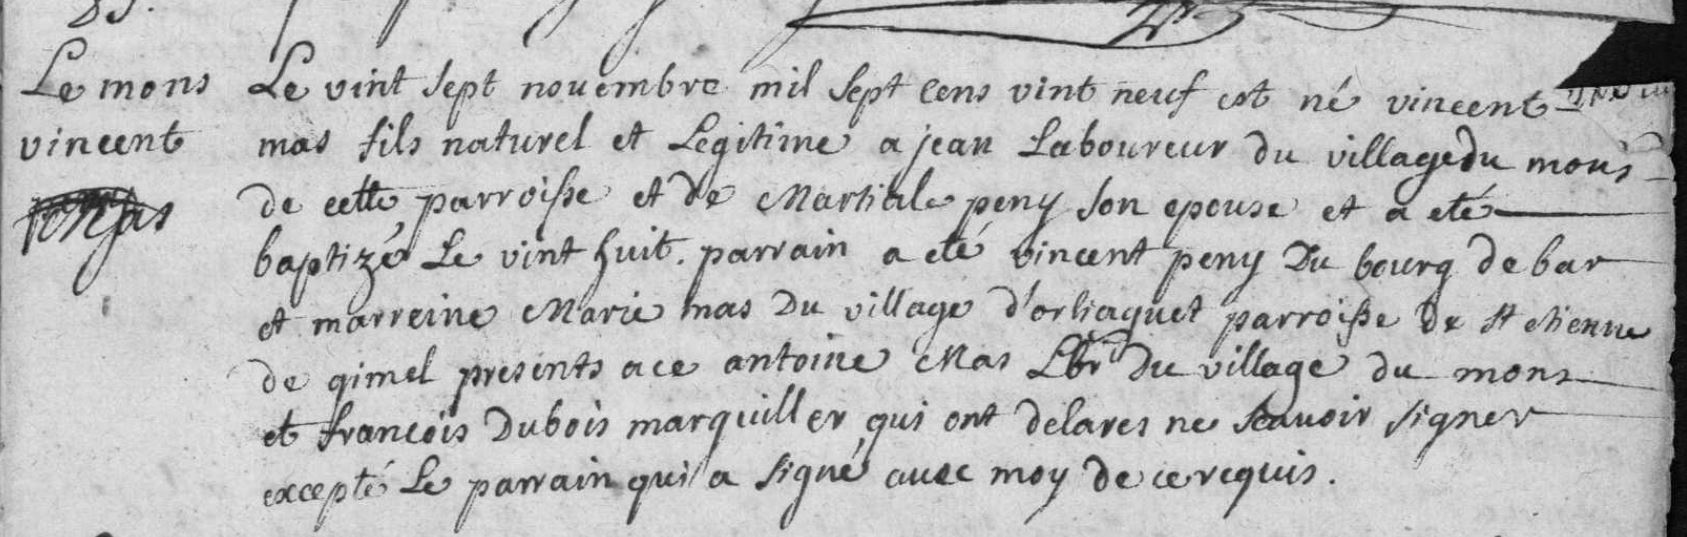 Le mons
vincent
Le vint sept novembre mil sept cens vint neuf est né vincent
mas fils naturel et Legitime a jean Laboureur du village du mons
de cette parroisse et de Martiale peny son epouse et a eté
baptizé Le vint huit. parrain a eté vincent peny Du bourg de bar
et marreine Marie mas Du village d'orliaguet parroisse de st etienne
de gimel presents a ce antoine Mas Lbr Du village du mons
et francois Dubois marguiller qui ont delares ne scavoir signer
excepté Le parrain qui a signé avec moy de ce requis.